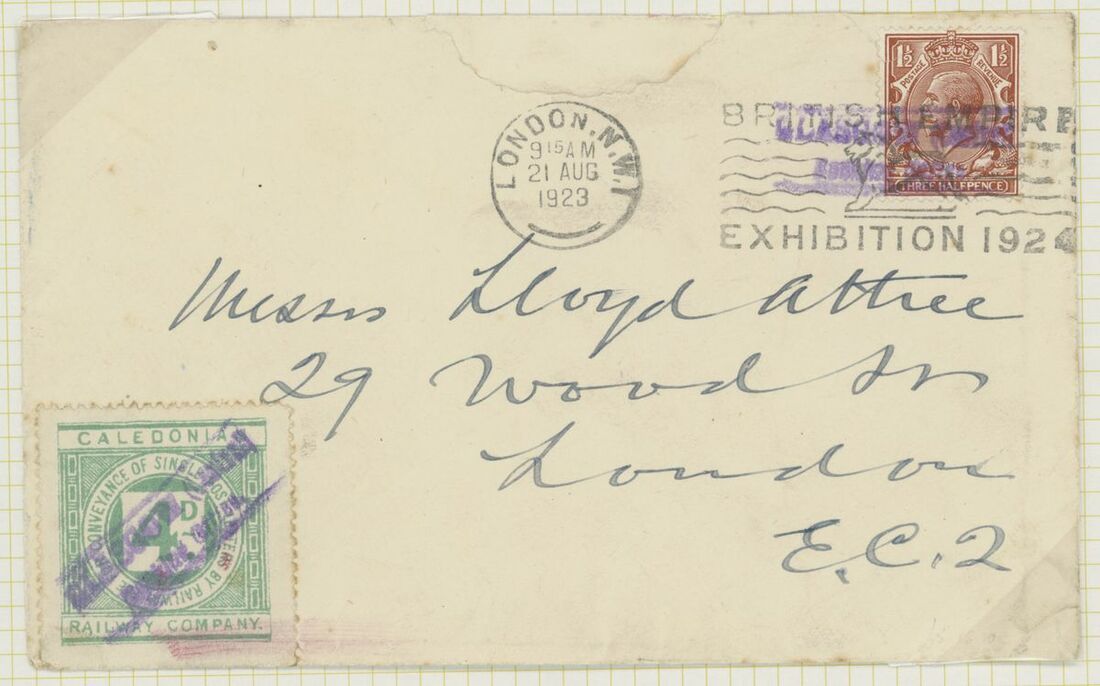 1½ 1½
POSTAGE REVENUE
THREE HALFPENCE
LONDON. N.W.1
9 15 AM
21 AUG
1923
BRITISH EMPIRE
EXHIBITION 1924
Messrs Lloyd Attree
29 Wood St
London
E.C.2
CALEDONIA
CONVEYANCE OF SINGLE POST LETTERS BY RAILWAY
4D
RAILWAY COMPANY.